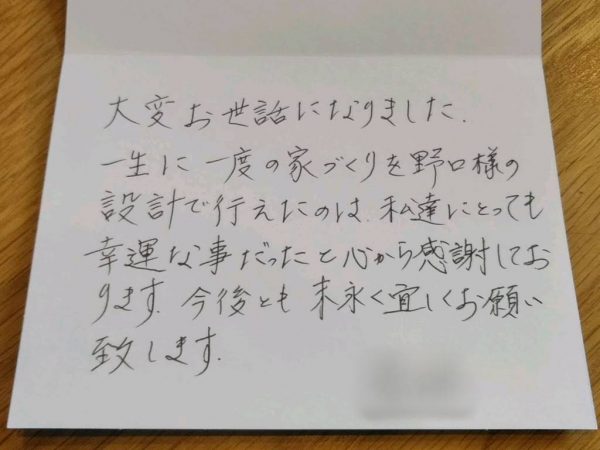 大変お世話になりました.
一生に一度の家づくりを野口様の
設計で行えたのは、私達にとっても
幸運な事だったと心から感謝してお
ります. 今後とも末永く宜しくお願い
致します.